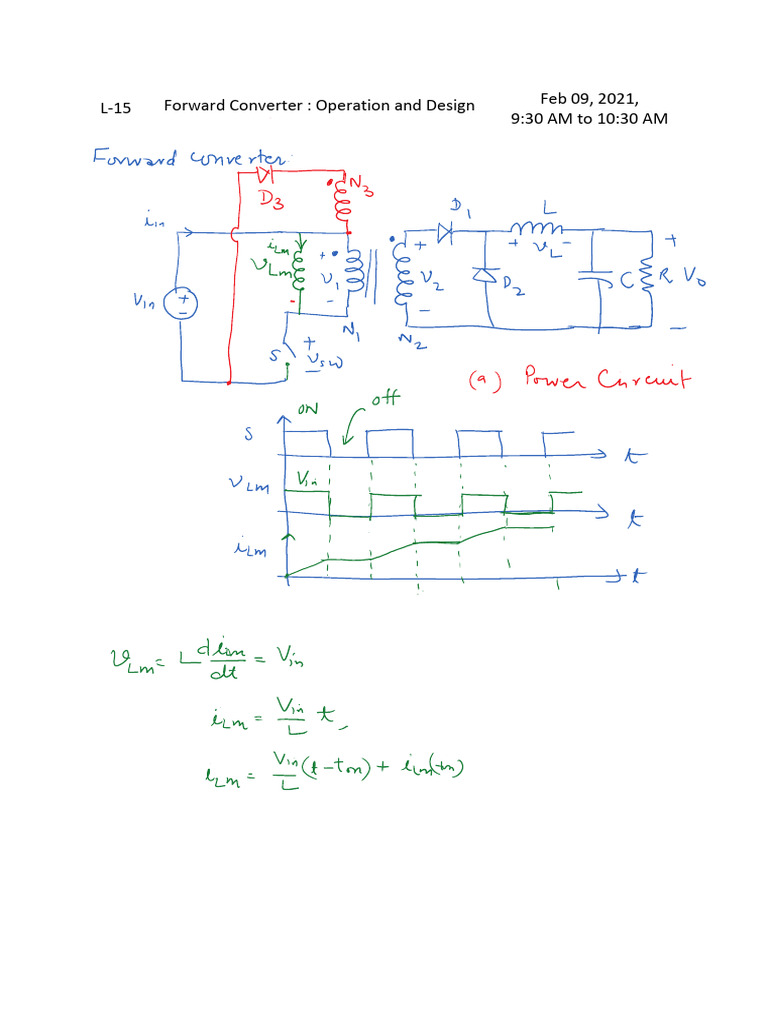 L-15 Forward Converter : Operation and Design Feb 09, 2021,
9:30 AM to 10:30 AM
Forward converter:
D3
N3
iin
iLm
vLm
+ v1 -
N1
Vin + -
S
+ vsw -
N2
+ v2 -
D1
D2
L
+ vL -
C
R
+ Vo -
(a) Power Circuit
ON
off
S
t
vLm
Vin
t
iLm
t
vLm = L diLm/dt = Vin
iLm = Vin/L t
iLm = Vin/L (t-ton) +